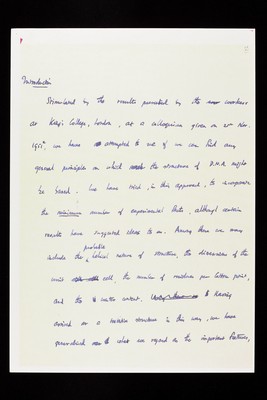 Introduction
Stimulated by the results presented by the workers
at King's College, London, at a colloquium given on 21st Nov.
1951, we have attempted to see if we can find any
general principles on which the structure of D.N.A. might
be based. We have tried, in this approach, to incorporate
the minimum number of experimental facts, although certain
results have suggested ideas to us. Among these we may
include the probable helical nature of structure, the dimensions of the
unit cell, the number of residues per lattice point,
and the water content. Having
arrived at a tentative structure in this way, we have
generalised to what we regard as the important features,